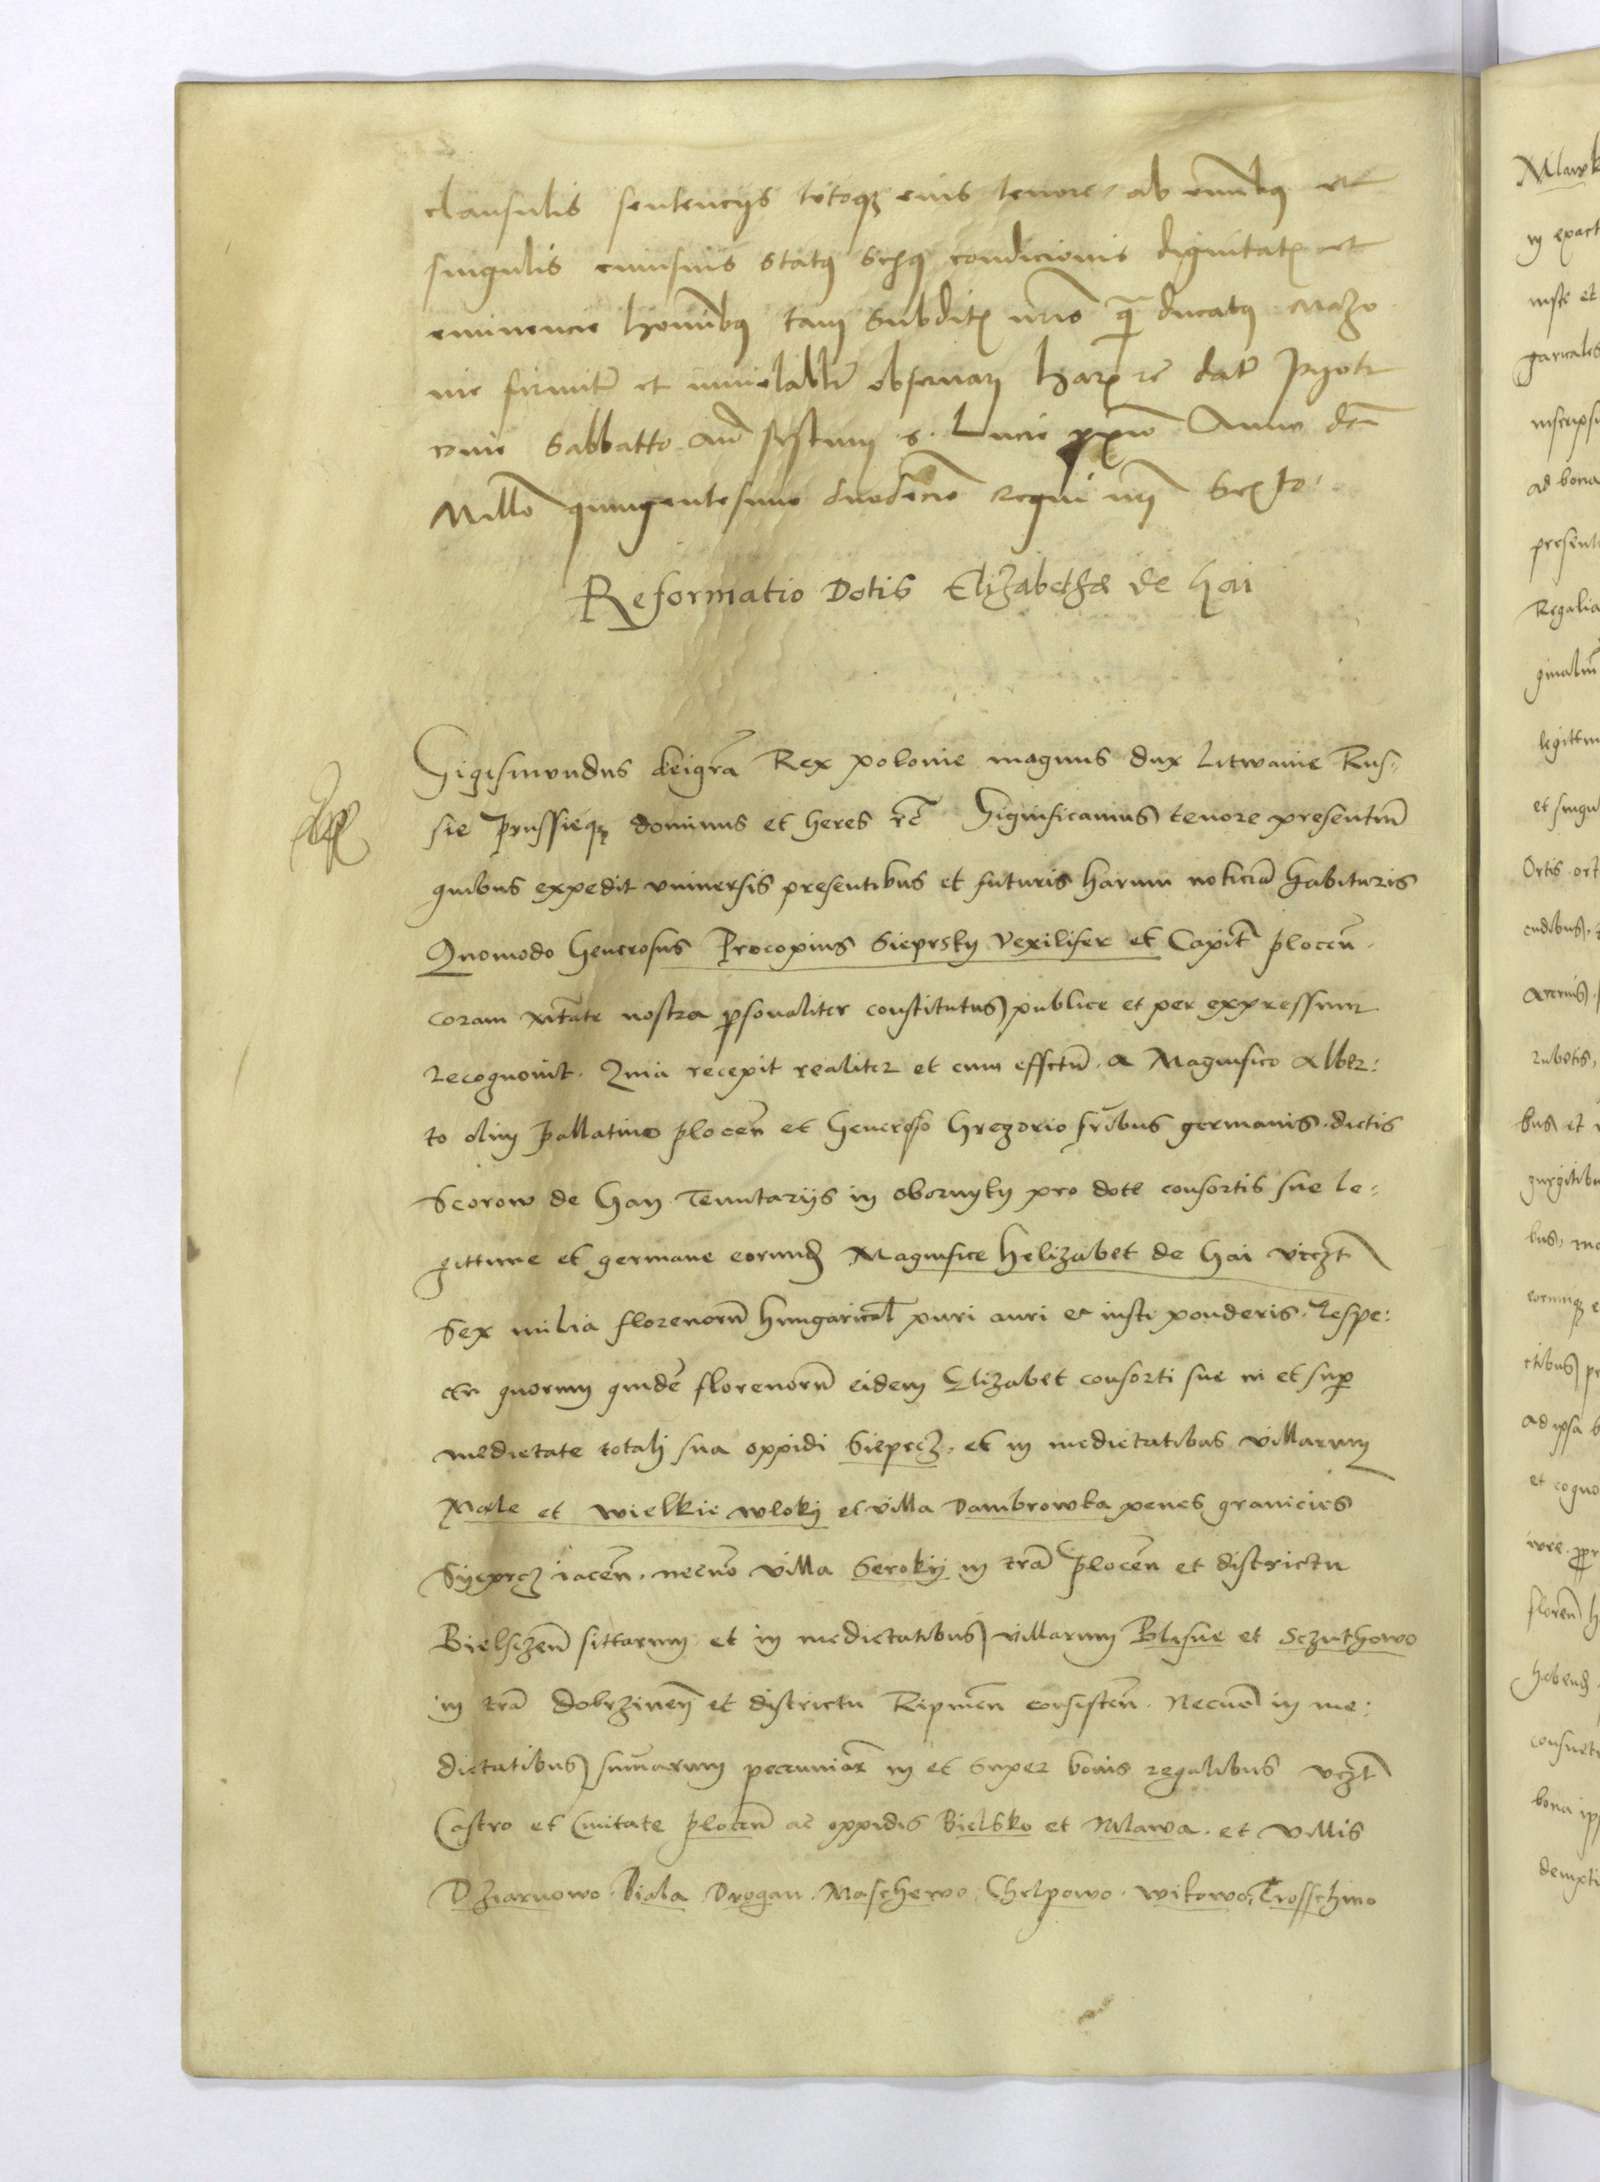 clausulis sentencijs totoqz eius tenore ab omnibus et
singulis cuiusuis status sexus condicionis dignitatis et
eminencie hominibus tam subditis nris qz ducatus Mazo
vie firmiter et inuiolabiliter obseruari harum re datum Pyotr
covie Sabbatto ante festum s. Lucie proximo Anno dni
Millo quingentesimo duodecimo regni nri Sexto
Reformatio Dotis Elizabethæ de hai
Sigismundus dei gra Rex polonie magnus dux Litwanie Rus-
sie Prussieqz dominus et heres rc Significamus tenore presentium
quibus expedit vniuersis presentibus et futuris harum noticiam habituris
Quomodo Generosus Procopius Sieprsky Vexilifer et Capit plocen
coram Mtate nostra personaliter constitutus publice et per expressum
recognouit. Quia recepit realiter et cum effectu. a Magnifico Alber:
to olim Pallatino plocen et Generoso Gregorio fribus germanis dictis
Scorow de Gay Tenutarijs in obornyky pro dote consortis sue le:
gittime et germane eorund Magnifice helizabet de Gai viczt
Sex milia florenorum hungarical puri auri et iusti ponderis. Respe:
ctu quorum quidem florenorum eidem Elizabet consorti sue in et super
medietate totali sua oppidi Sieprcz. et in medietatibus villarum
Male et wielkie wloky et villa Dambrowka penes granicies
Syeprcz iacen. necno villa Seroky in tra Plocen et districtu
Bielsczen sittarum et in medietatibus villarum Blisne et Sczuthowo
in tra dobrzinen et districtu Ripinen consisten. Necno in me:
dietatibus summarum pecuniar in et super bonis regalibus vczt
Castro et Ciuitate plocen ac oppidis Bielsko et Mlawa. et villis
Dziarnowo Biala Drogan Maschewo Chelpowo wikowo Trosschino